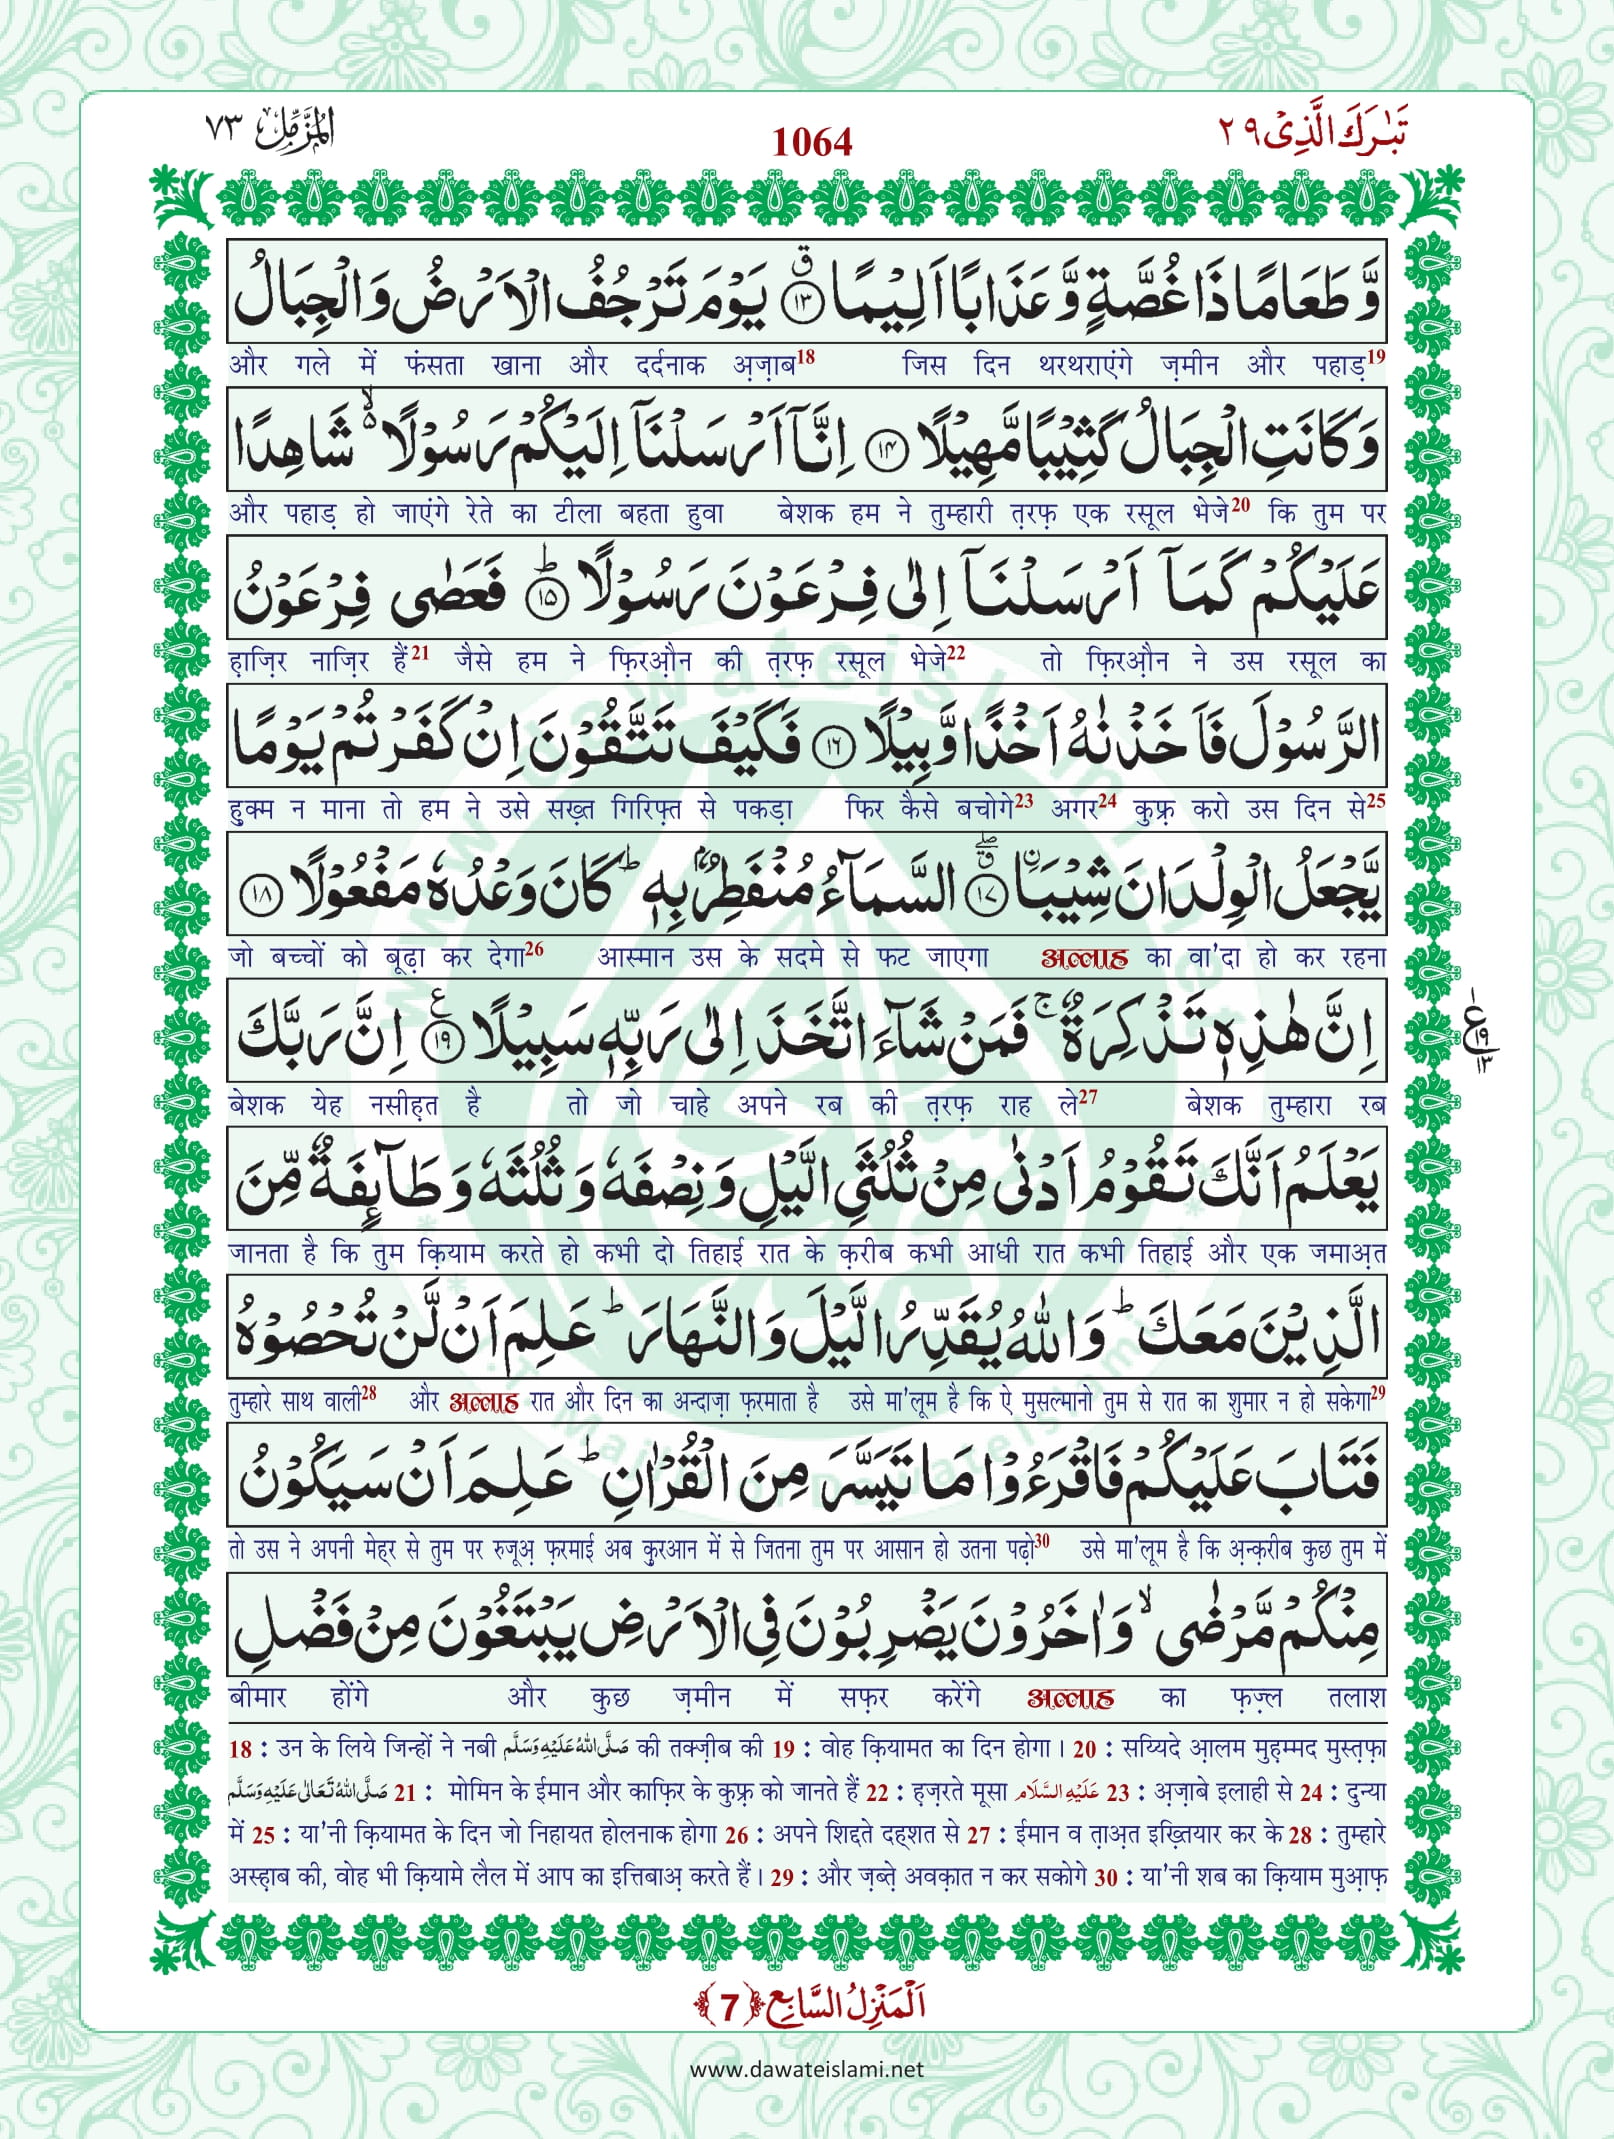 تَبٰرَكَ الَّذِیْ ۲۹ 1064 الْمُزَّمِّل ۷۳
وَّ طَعَامًا ذَا غُصَّةٍ وَّ عَذَابًا اَلِیْمًا ﴿۱۳﴾ۗ یَوْمَ تَرْجُفُ الْاَرْضُ وَ الْجِبَالُ
और गले में फंसता खाना और दर्दनाक अ़ज़ाब18 जिस दिन थरथराएंगे ज़मीन और पहाड़19
وَ كَانَتِ الْجِبَالُ كَثِیْبًا مَّهِیْلًا ﴿۱۴﴾ اِنَّاۤ اَرْسَلْنَاۤ اِلَیْكُمْ رَسُوْلًا ۙ۬ شَاهِدًا
और पहाड़ हो जाएंगे रेते का टीला बहता हुवा बेशक हम ने तुम्हारी त़रफ़ एक रसूल भेजे20 कि तुम पर
عَلَیْكُمْ كَمَاۤ اَرْسَلْنَاۤ اِلٰى فِرْعَوْنَ رَسُوْلًا ﴿۱۵﴾ؕ فَعَصٰى فِرْعَوْنُ
ह़ाज़िर नाज़िर हैं21 जैसे हम ने फ़िरऔ़न की त़रफ़ रसूल भेजे22 तो फ़िरऔ़न ने उस रसूल का
الرَّسُوْلَ فَاَخَذْنٰهُ اَخْذًا وَّبِیْلًا ﴿۱۶﴾ فَكَیْفَ تَتَّقُوْنَ اِنْ كَفَرْتُمْ یَوْمًا
हुक्म न माना तो हम ने उसे सख़्त गिरिफ़्त से पकड़ा फिर कैसे बचोगे23 अगर24 कुफ़्र करो उस दिन से25
یَّجْعَلُ الْوِلْدَانَ شِیْبَا ﴿۱۷﴾ۗۖ السَّمَآءُ مُنْفَطِرٌۢ بِهٖ ؕ كَانَ وَعْدُهٗ مَفْعُوْلًا ﴿۱۸﴾
जो बच्चों को बूढ़ा कर देगा26 आस्मान उस के सदमे से फट जाएगा अल्लाह का वा'दा हो कर रहना
اِنَّ هٰذِهٖ تَذْكِرَةٌ ۚ فَمَنْ شَآءَ اتَّخَذَ اِلٰى رَبِّهٖ سَبِیْلًا ﴿۱۹﴾ع اِنَّ رَبَّكَ
ع ۱۹ ۱۳
बेशक येह नसीह़त है तो जो चाहे अपने रब की त़रफ़ राह ले27 बेशक तुम्हारा रब
یَعْلَمُ اَنَّكَ تَقُوْمُ اَدْنٰى مِنْ ثُلُثَیِ الَّیْلِ وَ نِصْفَهٗ وَ ثُلُثَهٗ وَ طَآىٕفَةٌ مِّنَ
जानता है कि तुम क़ियाम करते हो कभी दो तिहाई रात के क़रीब कभी आधी रात कभी तिहाई और एक जमाअ़त
الَّذِیْنَ مَعَكَ ؕ وَ اللّٰهُ یُقَدِّرُ الَّیْلَ وَ النَّهَارَ ؕ عَلِمَ اَنْ لَّنْ تُحْصُوْهُ
तुम्हारे साथ वाली28 और अल्लाह रात और दिन का अन्दाज़ा फ़रमाता है उसे मा'लूम है कि ऐ मुसल्मानो तुम से रात का शुमार न हो सकेगा29
فَتَابَ عَلَیْكُمْ فَاقْرَءُوْا مَا تَیَسَّرَ مِنَ الْقُرْاٰنِ ؕ عَلِمَ اَنْ سَیَكُوْنُ
तो उस ने अपनी मेह्र से तुम पर रुजूअ़ फ़रमाई अब कु़रआन में से जितना तुम पर आसान हो उतना पढ़ो30 उसे मा'लूम है कि अ़न्क़रीब कुछ तुम में
مِنْكُمْ مَّرْضٰى ۙ وَ اٰخَرُوْنَ یَضْرِبُوْنَ فِی الْاَرْضِ یَبْتَغُوْنَ مِنْ فَضْلِ
बीमार होंगे और कुछ ज़मीन में सफ़र करेंगे अल्लाह का फ़ज़्ल तलाश
18 : उन के लिये जिन्हों ने नबी صَلَّى اللّٰهُ عَلَيْهِ وَسَلَّم की तक्ज़ीब की 19 : वोह क़ियामत का दिन होगा। 20 : सय्यिदे आ़लम मुह़म्मद मुस्त़फ़ा
صَلَّى اللّٰهُ تَعَالٰى عَلَيْهِ وَسَلَّم 21 : मोमिन के ईमान और काफ़िर के कुफ़्र को जानते हैं 22 : ह़ज़रते मूसा عَلَيْهِ السَّلَام 23 : अ़ज़ाबे इलाही से 24 : दुन्या
में 25 : या'नी क़ियामत के दिन जो निहायत होलनाक होगा 26 : अपने शिद्दते दह्शत से 27 : ईमान व त़ाअ़त इख़्तियार कर के 28 : तुम्हारे
अस्ह़ाब की, वोह भी क़ियामे लैल में आप का इत्तिबाअ़ करते हैं। 29 : और ज़ब्त़े अवक़ात न कर सकोगे 30 : या'नी शब का क़ियाम मुआ़फ़
اَلْمَنْزِلُ السَّابِع ﴿7﴾
www.dawateislami.net